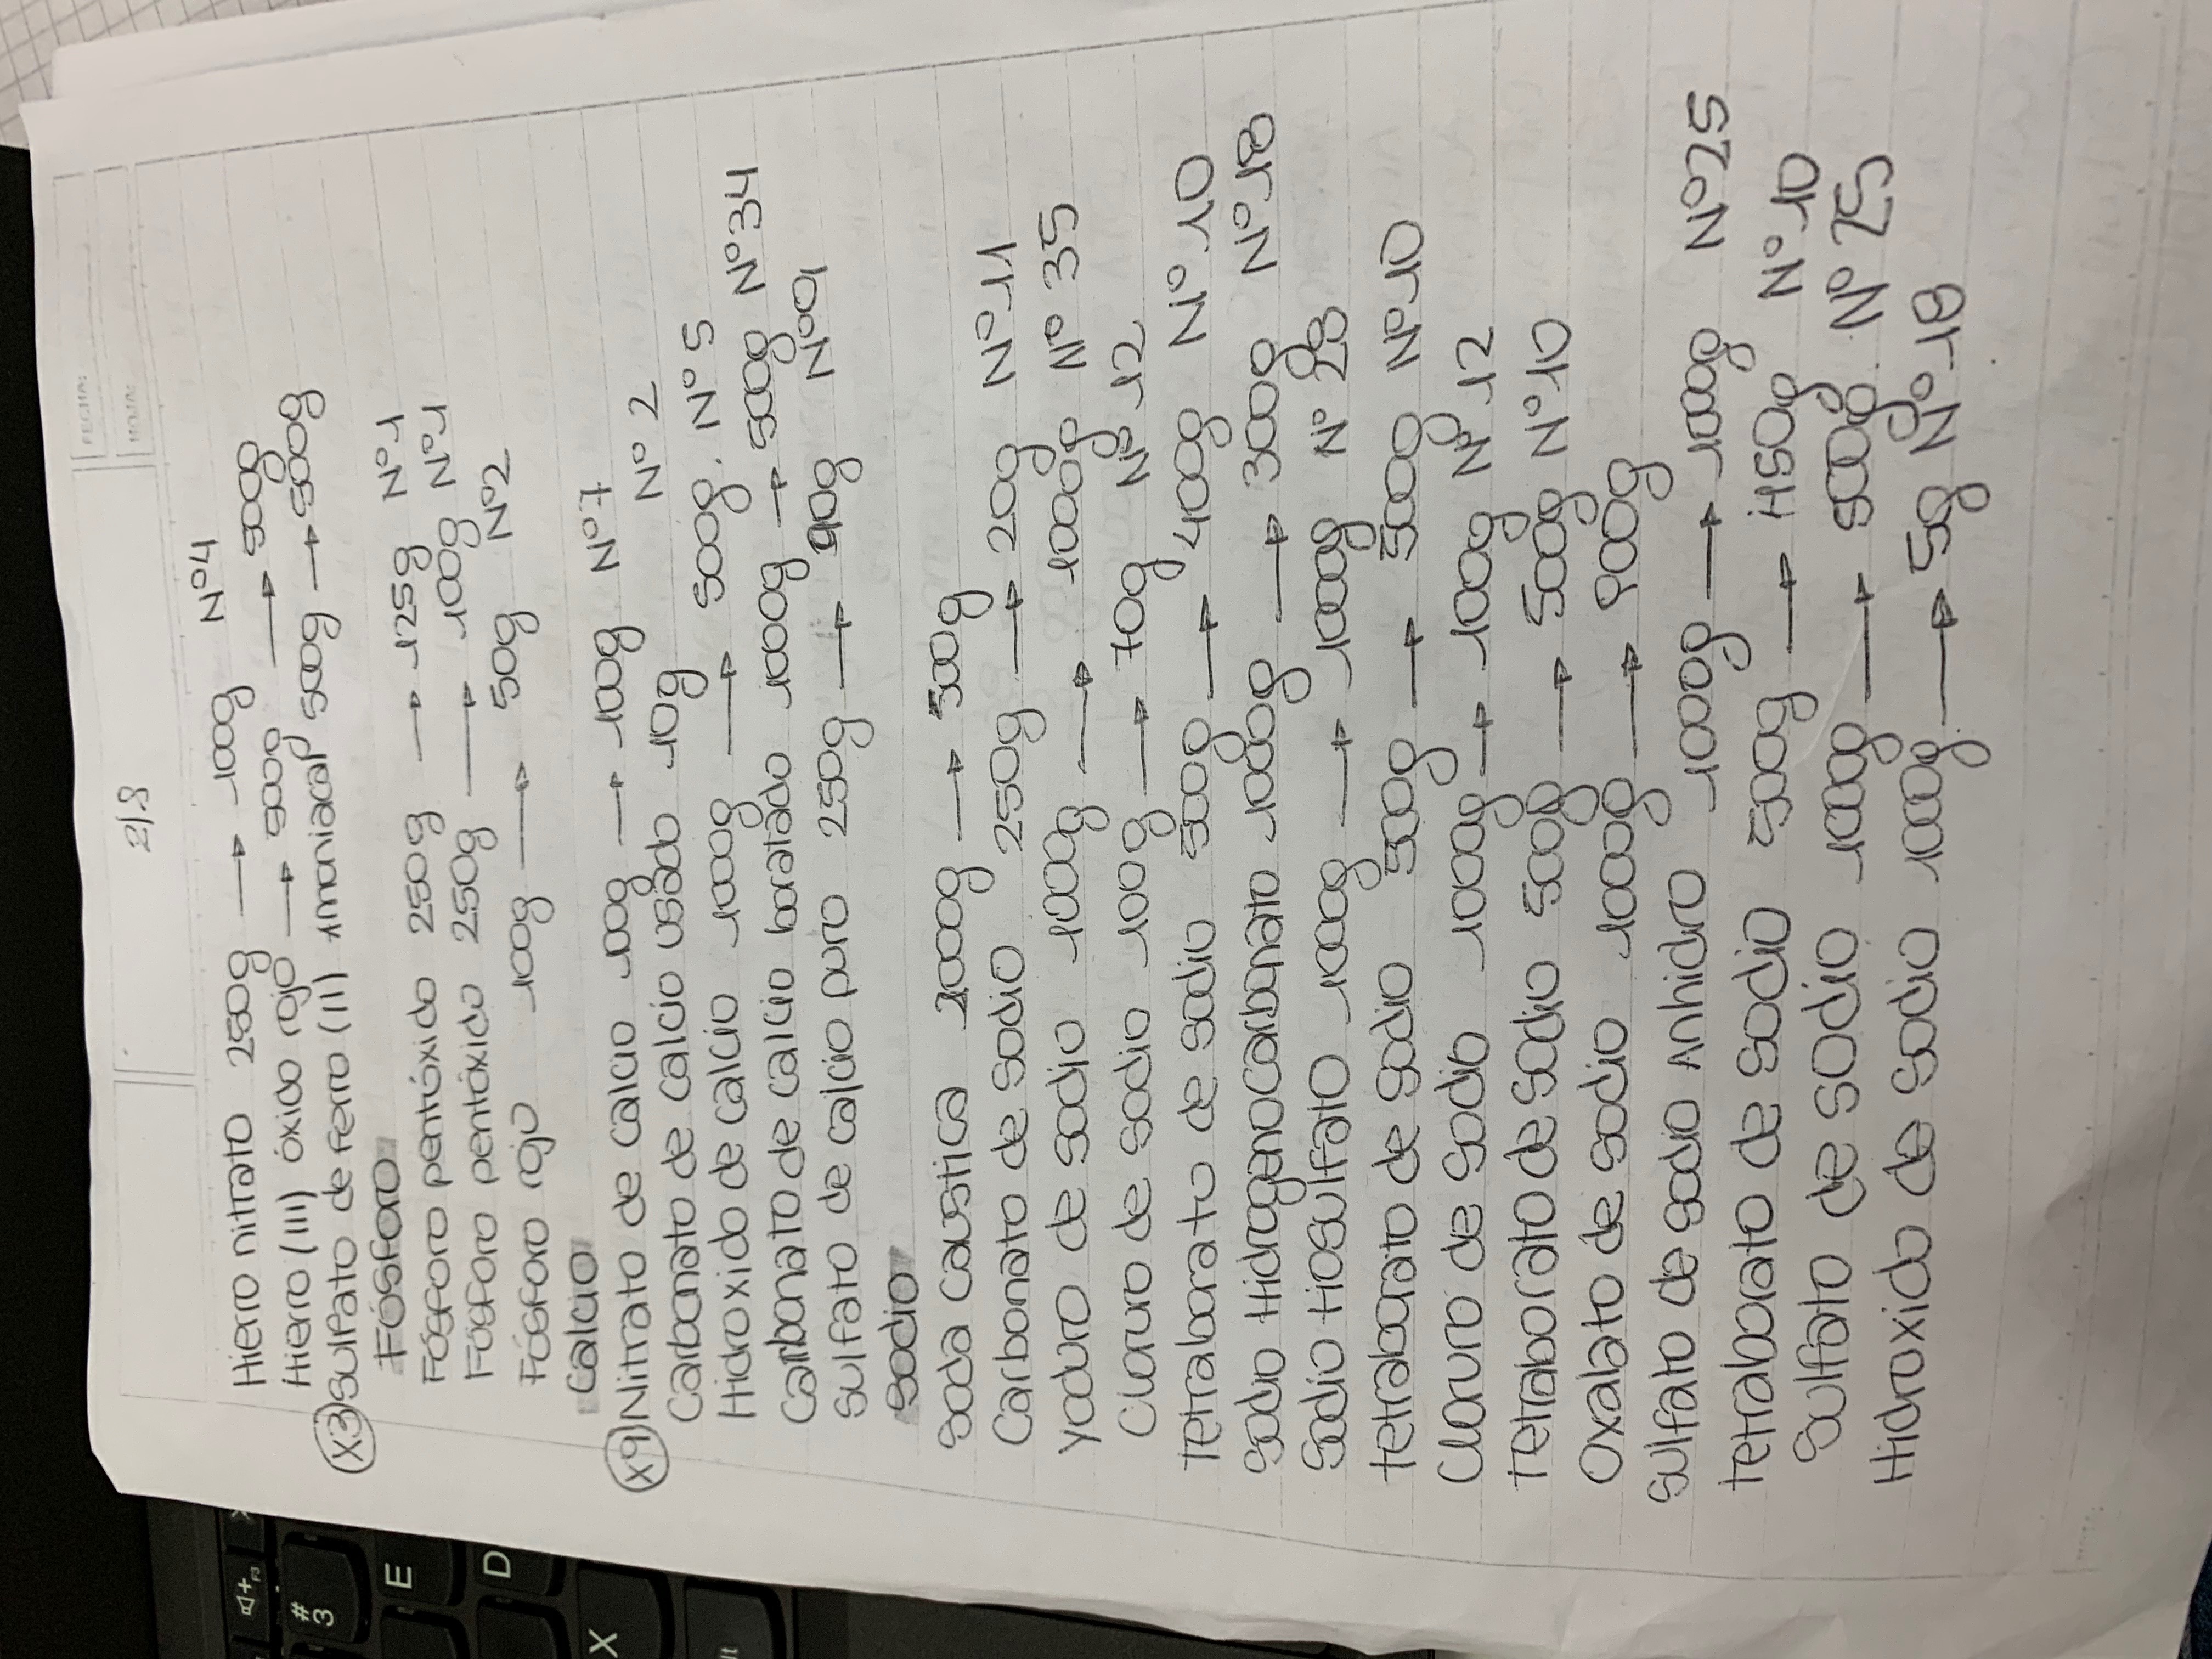 FECHA:
HOJA:
2/8
Hierro nitrato 250g → 100g N°4
Hierro (III) óxido rojo → 500g → 500g
(x3) Sulfato de ferro (II) Amoniacal 500g → 500g
Fósforo
Fósforo pentóxido 250g → 125g N°1
Fósforo pentóxido 250g → 100g N°1
Fósforo rojo 100g → 50g N°2
Calcio
(x9) Nitrato de calcio 100g → 100g N°7
Carbonato de calcio usado 10g N° 2
Hidroxido de calcio 1000g → 500g. N° 5
Carbonato de calcio boratado 1000g → 500g N°34
Sulfato de calcio puro 250g → 90g N°9
Sodio
Soda caustica 2000g → 500g
Carbonato de sodio 250g → 20g N°11
Yoduro de sodio 1000g → 1000g N° 35
Cloruro de sodio 100g → 70g N° 12
Tetraborato de sodio 500g → 400g N°10
Sodio Hidrogenocarbonato 1000g → 300g N°18
Sodio tiosulfato 1000g → 1000g N° 28
tetraborato de sodio 500g → 500g N°10
Cloruro de sodio 1000g → 100g N° 12
Tetraborato de sodio 500g → 500g N°10
Oxalato de sodio 1000g → 900g
Sulfato de sodio Anhidro 1000g → 1000g N°25
tetraborato de sodio 500g → 450g N°10
Sulfato de sodio 1000g → 500g. N° 25
Hidroxido de sodio 1000g → 5g N°18